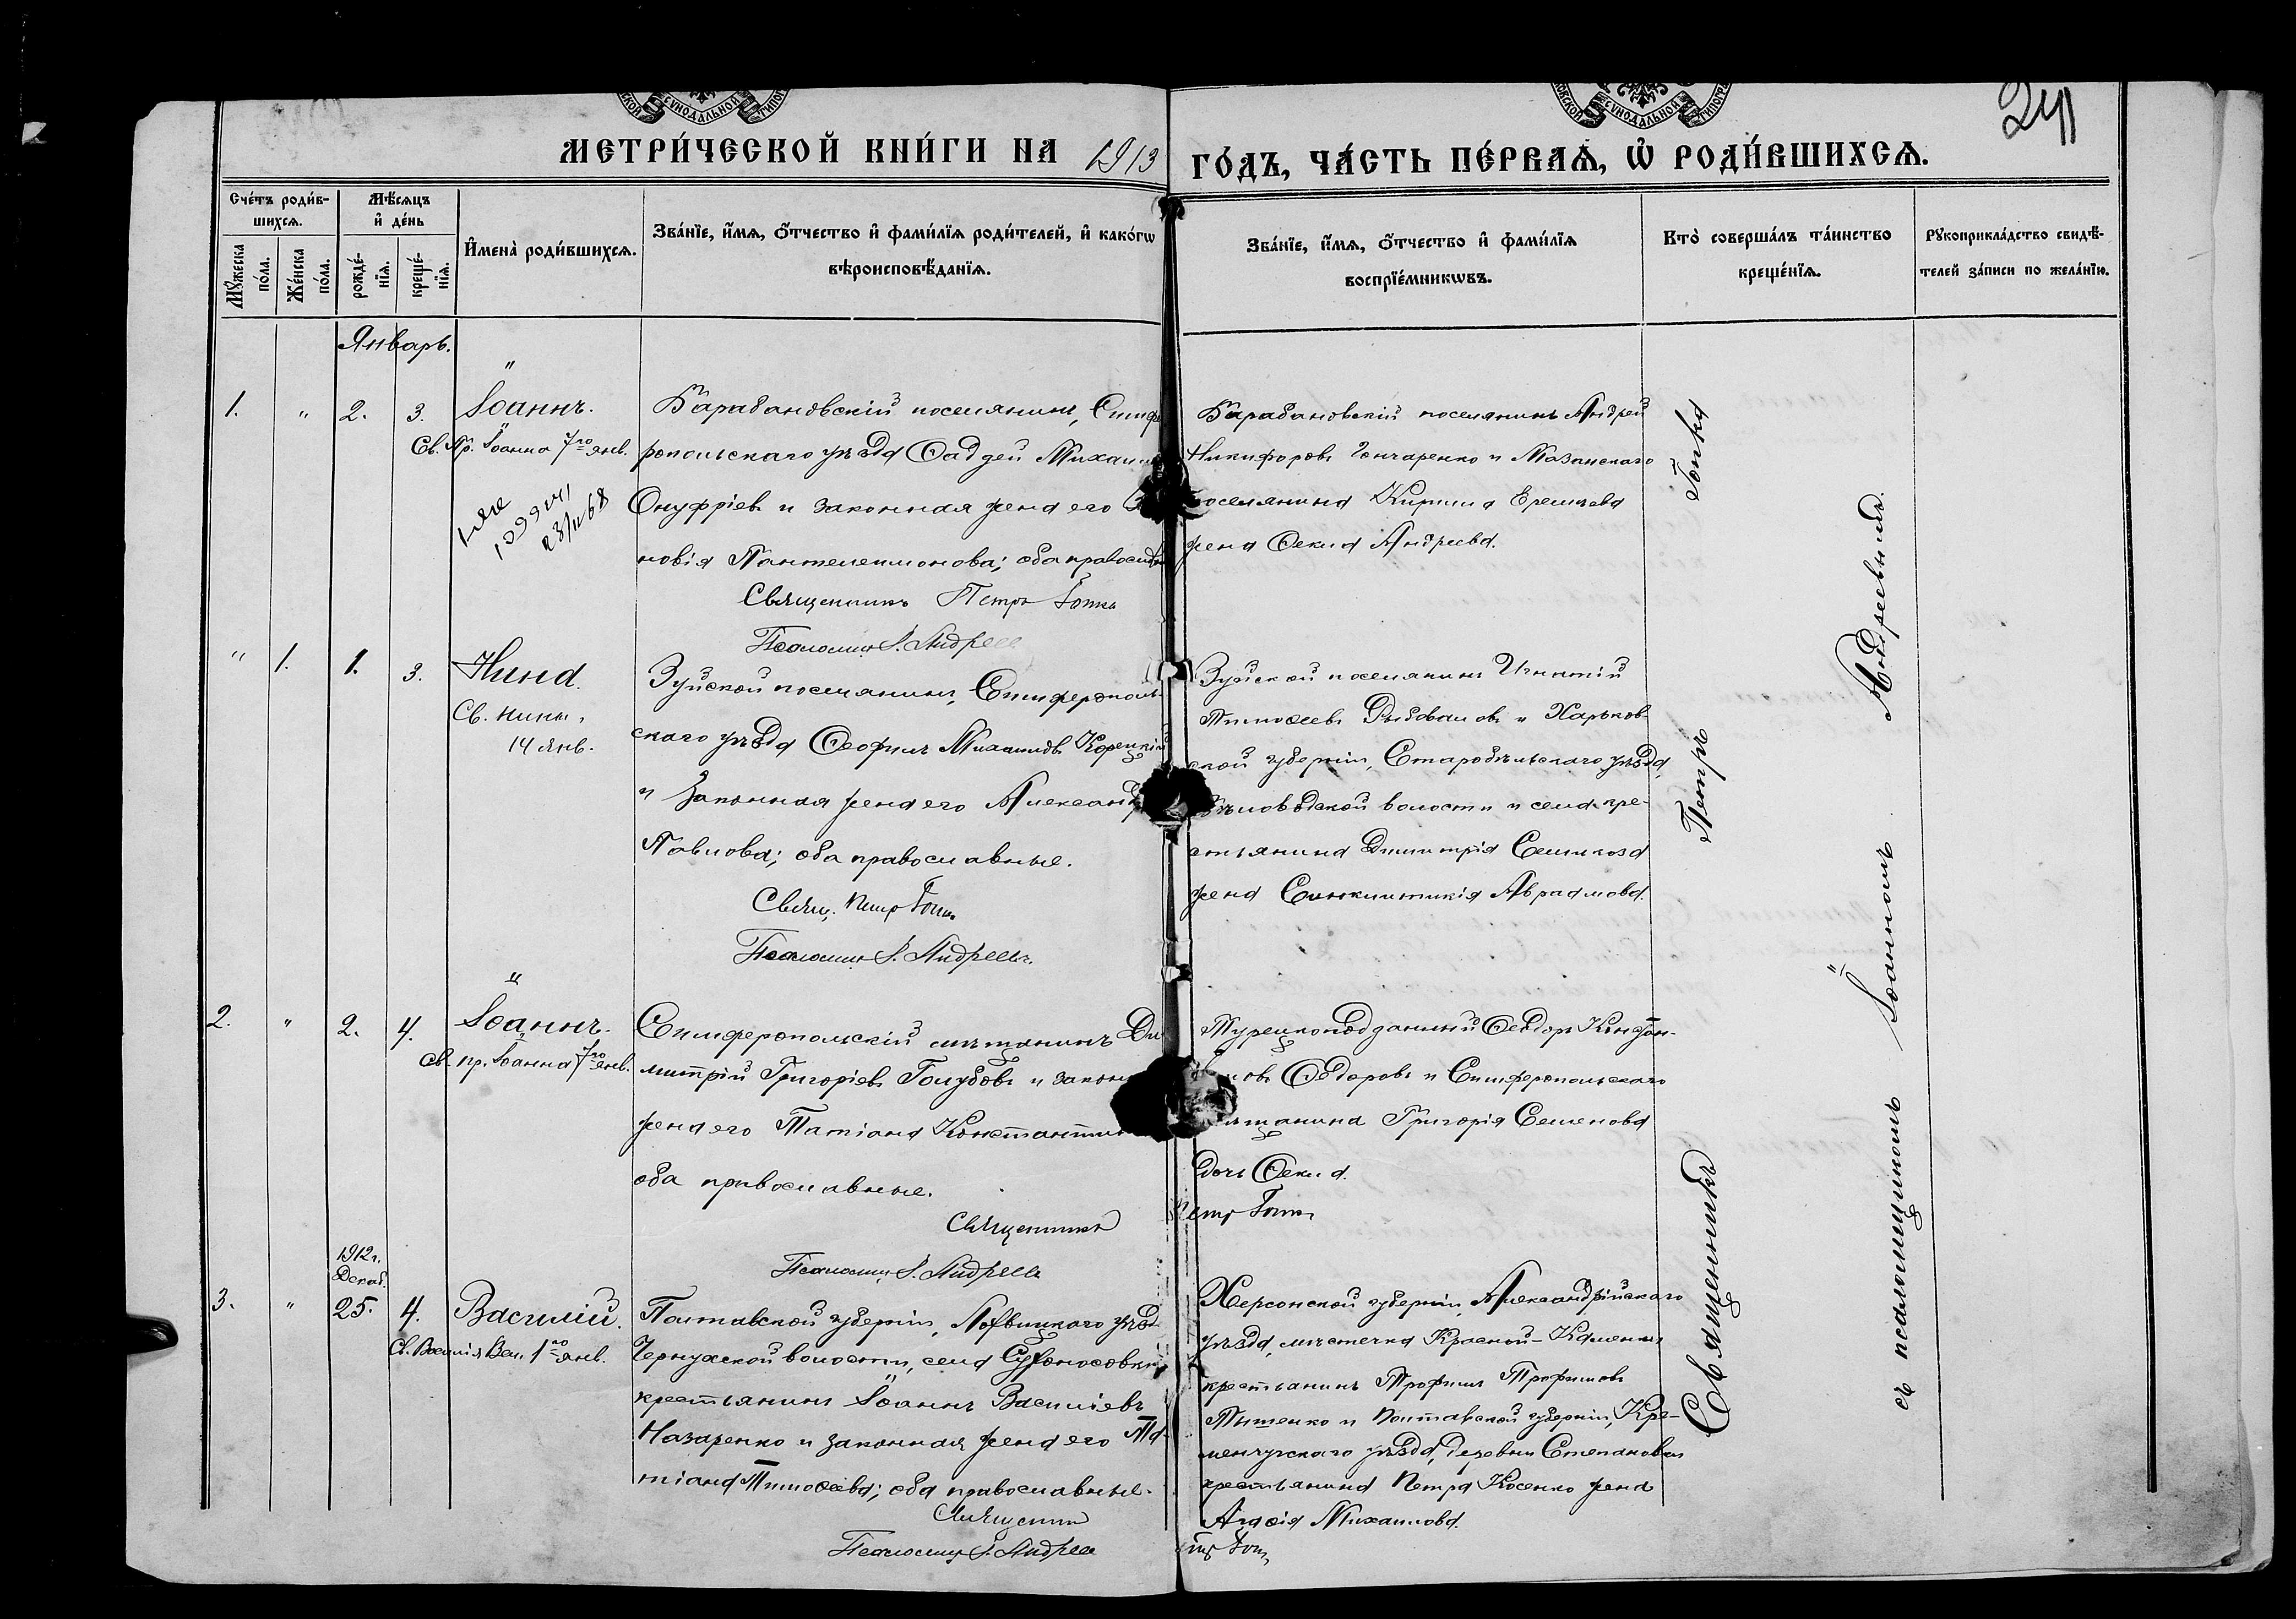 241
МЕТРИ́ЧЕСКОЙ КНИ́ГИ НА 1913 ГО́ДЪ, ЧА́СТЬ ПЕ́РВАѦ, Ѡ҆ РОДИ́ВШИХСѦ.
Сче́тъ роди́в-
шихсѧ.
Мѣ́сѧцъ
и҆ де́нь
Мꙋ́жеска
по́ла.
Же́нска
по́ла.
рожде́-
нїѧ.
креще́-
нїѧ.
И҆мена̀ роди́вшихсѧ.
Зва́нїе, и҆́мѧ, ѻ҆́тчество и҆ фами́лїѧ роди́телей, и҆ како́гѡ
вѣроисповѣ́данїѧ.
Зва́нїе, и҆́мѧ, ѻ҆́тчество и҆ фами́лїѧ
воспрїе́мникѡвъ.
Кто̀ соверша́лъ та́инство
креще́нїѧ.
Рꙋкоприкла́дство свидѣ́-
телей за́писи по жела́нїю.
Январь.
1. " 2. 3. Іоаннъ.
Св. Пр. Іоанна 7го янв.
Барабановскій поселянинъ, Симфе
ропольскаго уѣзда Фаддей Михаил
Онуфріевъ и законная жена его
новія Пантелеимонова; оба правосла
Священникъ Петръ Гопка
Псаломщ І. Андрее
Барабановскій поселянинъ Андрей
Никифоровъ Гончаренко и Мазанскаго
поселянина Кирилла Еремѣева
жена Фекла Андреева.
23/II 68
" 1. 1. 3. Нина.
Св. Нины,
14 янв.
Зуйской поселянинъ, Симферополь-
скаго уѣзда Феофилъ Михаиловъ Корецкій
и законная жена его Александр
Павлова; оба православные.
Свящ. Петр Гопка
Псаломщ І. Андреевъ.
Зуйской поселянинъ Игнатій
Тимофеевъ и Харьков-
ской губерніи, Старобѣльскаго уѣзда,
Бѣловодской волости и села кре-
стьянина Димитрія
жена Синклитикія Авраамова.
2. " 2. 4. Іоаннъ.
Св. пр. Іоанна 7го янв.
Симферопольскій мѣщанинъ Ди
митрій Григоріевъ Голубовъ и закон
жена его Татіана Константин
оба православные.
Священникъ Петр Гопка
Псаломщ І. Андрее
Турецкоподданный Феодоръ
Феодоровъ и Симферопольскаго
мѣщанина Григорія Семенова
дочь Фекла.
1912 г.
Декаб.
3. " 25. 4. Василій.
Св. Василія Вел. 1го янв.
Полтавской губерніи, Лохвицкаго уѣзд
Чернухской волости, села Сухоносовки
крестьянинъ Іоаннъ Василіевъ
Назаренко и законная жена его Та-
тіана Тимофеева; оба православные.
Священник
Псаломщ І. Андрее
Херсонской губерніи, Александрійскаго
уѣзда, мѣстечка Красной-Каменки
крестьянинъ Трофимъ Трофимовъ
и Полтавской губерніи, Кре-
менчугскаго уѣзда, деревни Степановки
крестьянина Петра Косенко жена
Агафія Михаилова.
Гопка
Священникъ Петръ Гопка
съ псаломщикомъ Іоанномъ Андреевымъ.